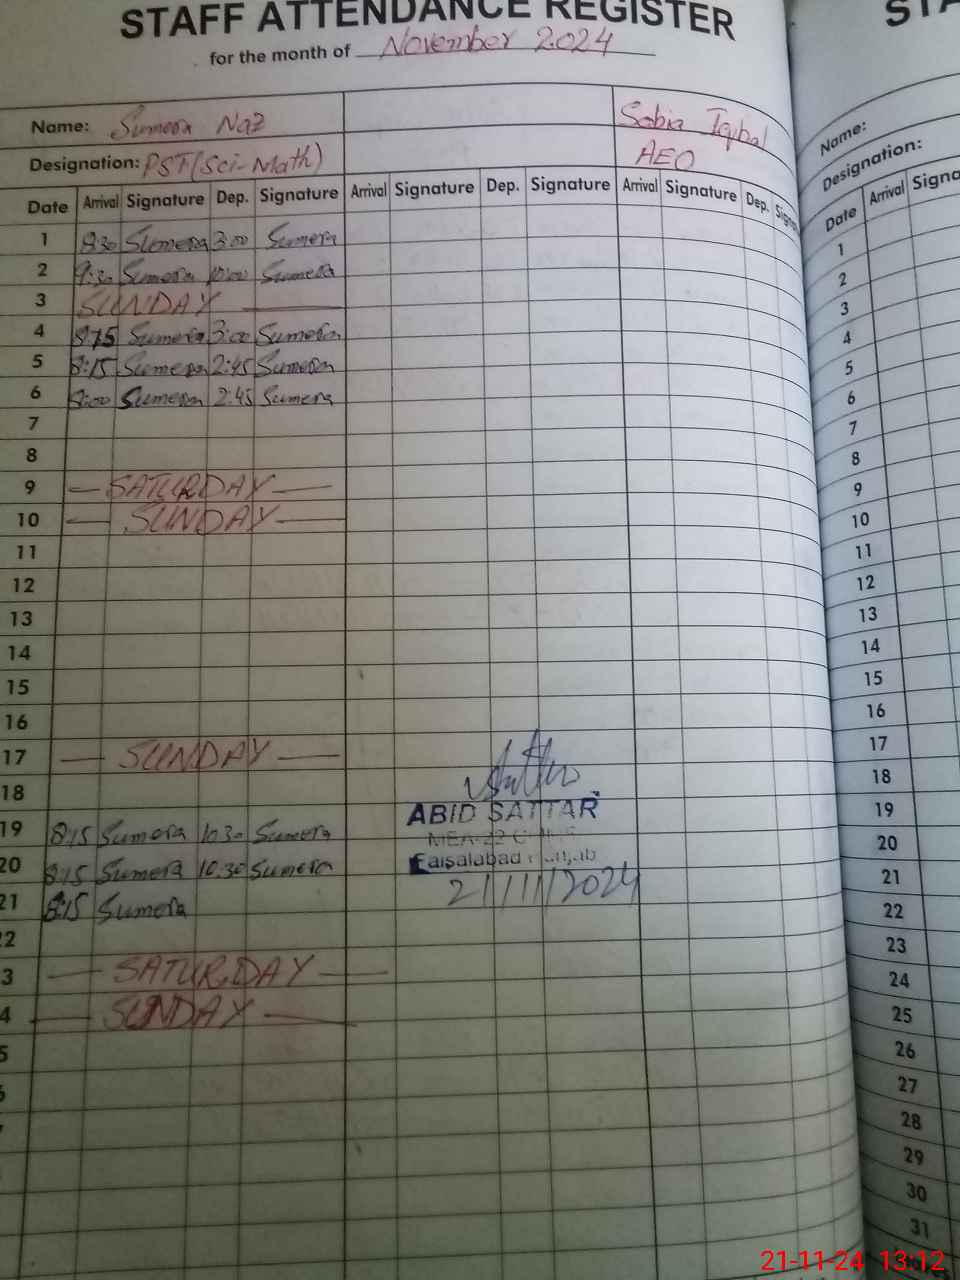 STAFF ATTENDANCE REGISTER
for the month of November 2024
Name: Sumera Naz Sabia Iqbal
Designation: PST (Sci-Math) AEO
Date Arrival Signature Dep. Signature Arrival Signature Dep. Signature Arrival Signature Dep. Signa
1 8:30 Sumera 3:00 Sumera
2 9:30 Sumera 10:00 Sumera
3 SUNDAY
4 8:15 Sumera 3:00 Sumera
5 8:15 Sumera 2:45 Sumera
6 Sumera 2:45 Sumera
7
8
9 — SATURDAY —
10 — SUNDAY —
11
12
13
14
15
16
17 — SUNDAY —
18
19 8:15 Sumera 10:30 Sumera
20 8:15 Sumera 10:30 Sumera
21 8:15 Sumera
22
3 — SATURDAY —
4 — SUNDAY —
5
6
ABID SATTAR
MEA-22
Faisalabad Punjab
21/11/2024
STA
Name:
Designation:
Date Arrival Signa
1
2
3
4
5
6
7
8
9
10
11
12
13
14
15
16
17
18
19
20
21
22
23
24
25
26
27
28
29
30
31
21-11-24 13:12